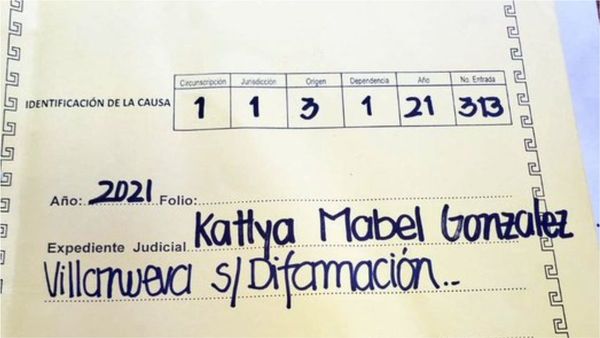 Circunscripción Jurisdicción Origen Dependencia Año No. Entrada
IDENTIFICACIÓN DE LA CAUSA 1 1 3 1 21 313
Año: 2021 Folio:
Expediente Judicial Kattya Mabel Gonzalez
Villanueva s/Difamación..